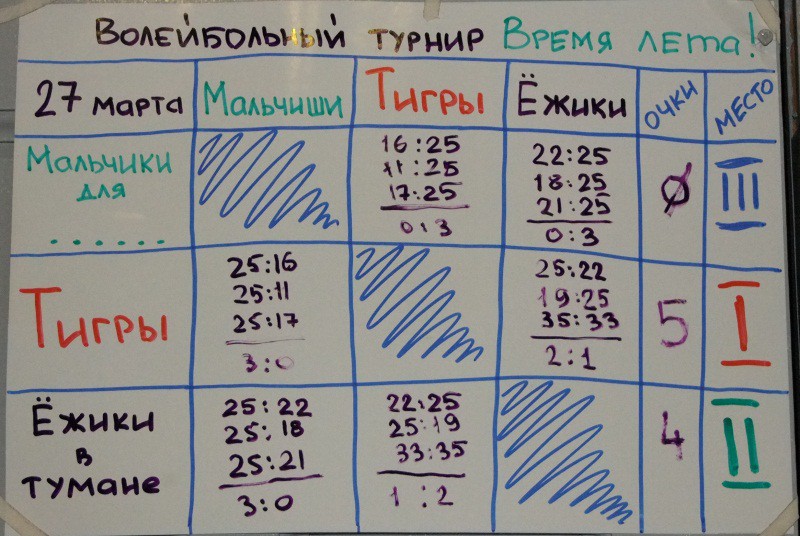 Волейбольный турнир Время лета!
27 марта Мальчиши Тигры Ёжики очки место
Мальчики
для
......
16:25
11:25
17:25
0:3
22:25
18:25
21:25
0:3
0
III
Тигры
25:16
25:11
25:17
3:0
25:22
19:25
35:33
2:1
5
I
Ёжики
в
тумане
25:22
25:18
25:21
3:0
22:25
25:19
33:35
1:2
4
II